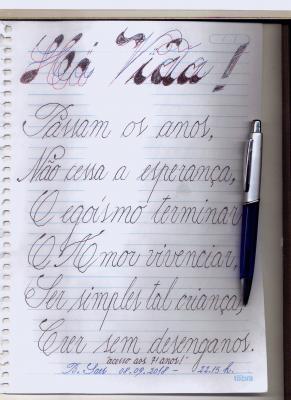 Há Vida!
Passam os anos,
Não cessa a esperança,
O egoísmo terminar
O Amor vivenciar,
Ser simples tal criança,
Crer sem desenganos.
08.09.2018 - 22.15 h.
tilibra